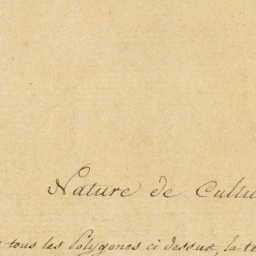 Nature de Cultu
tous les Polygones ci dessus, la te